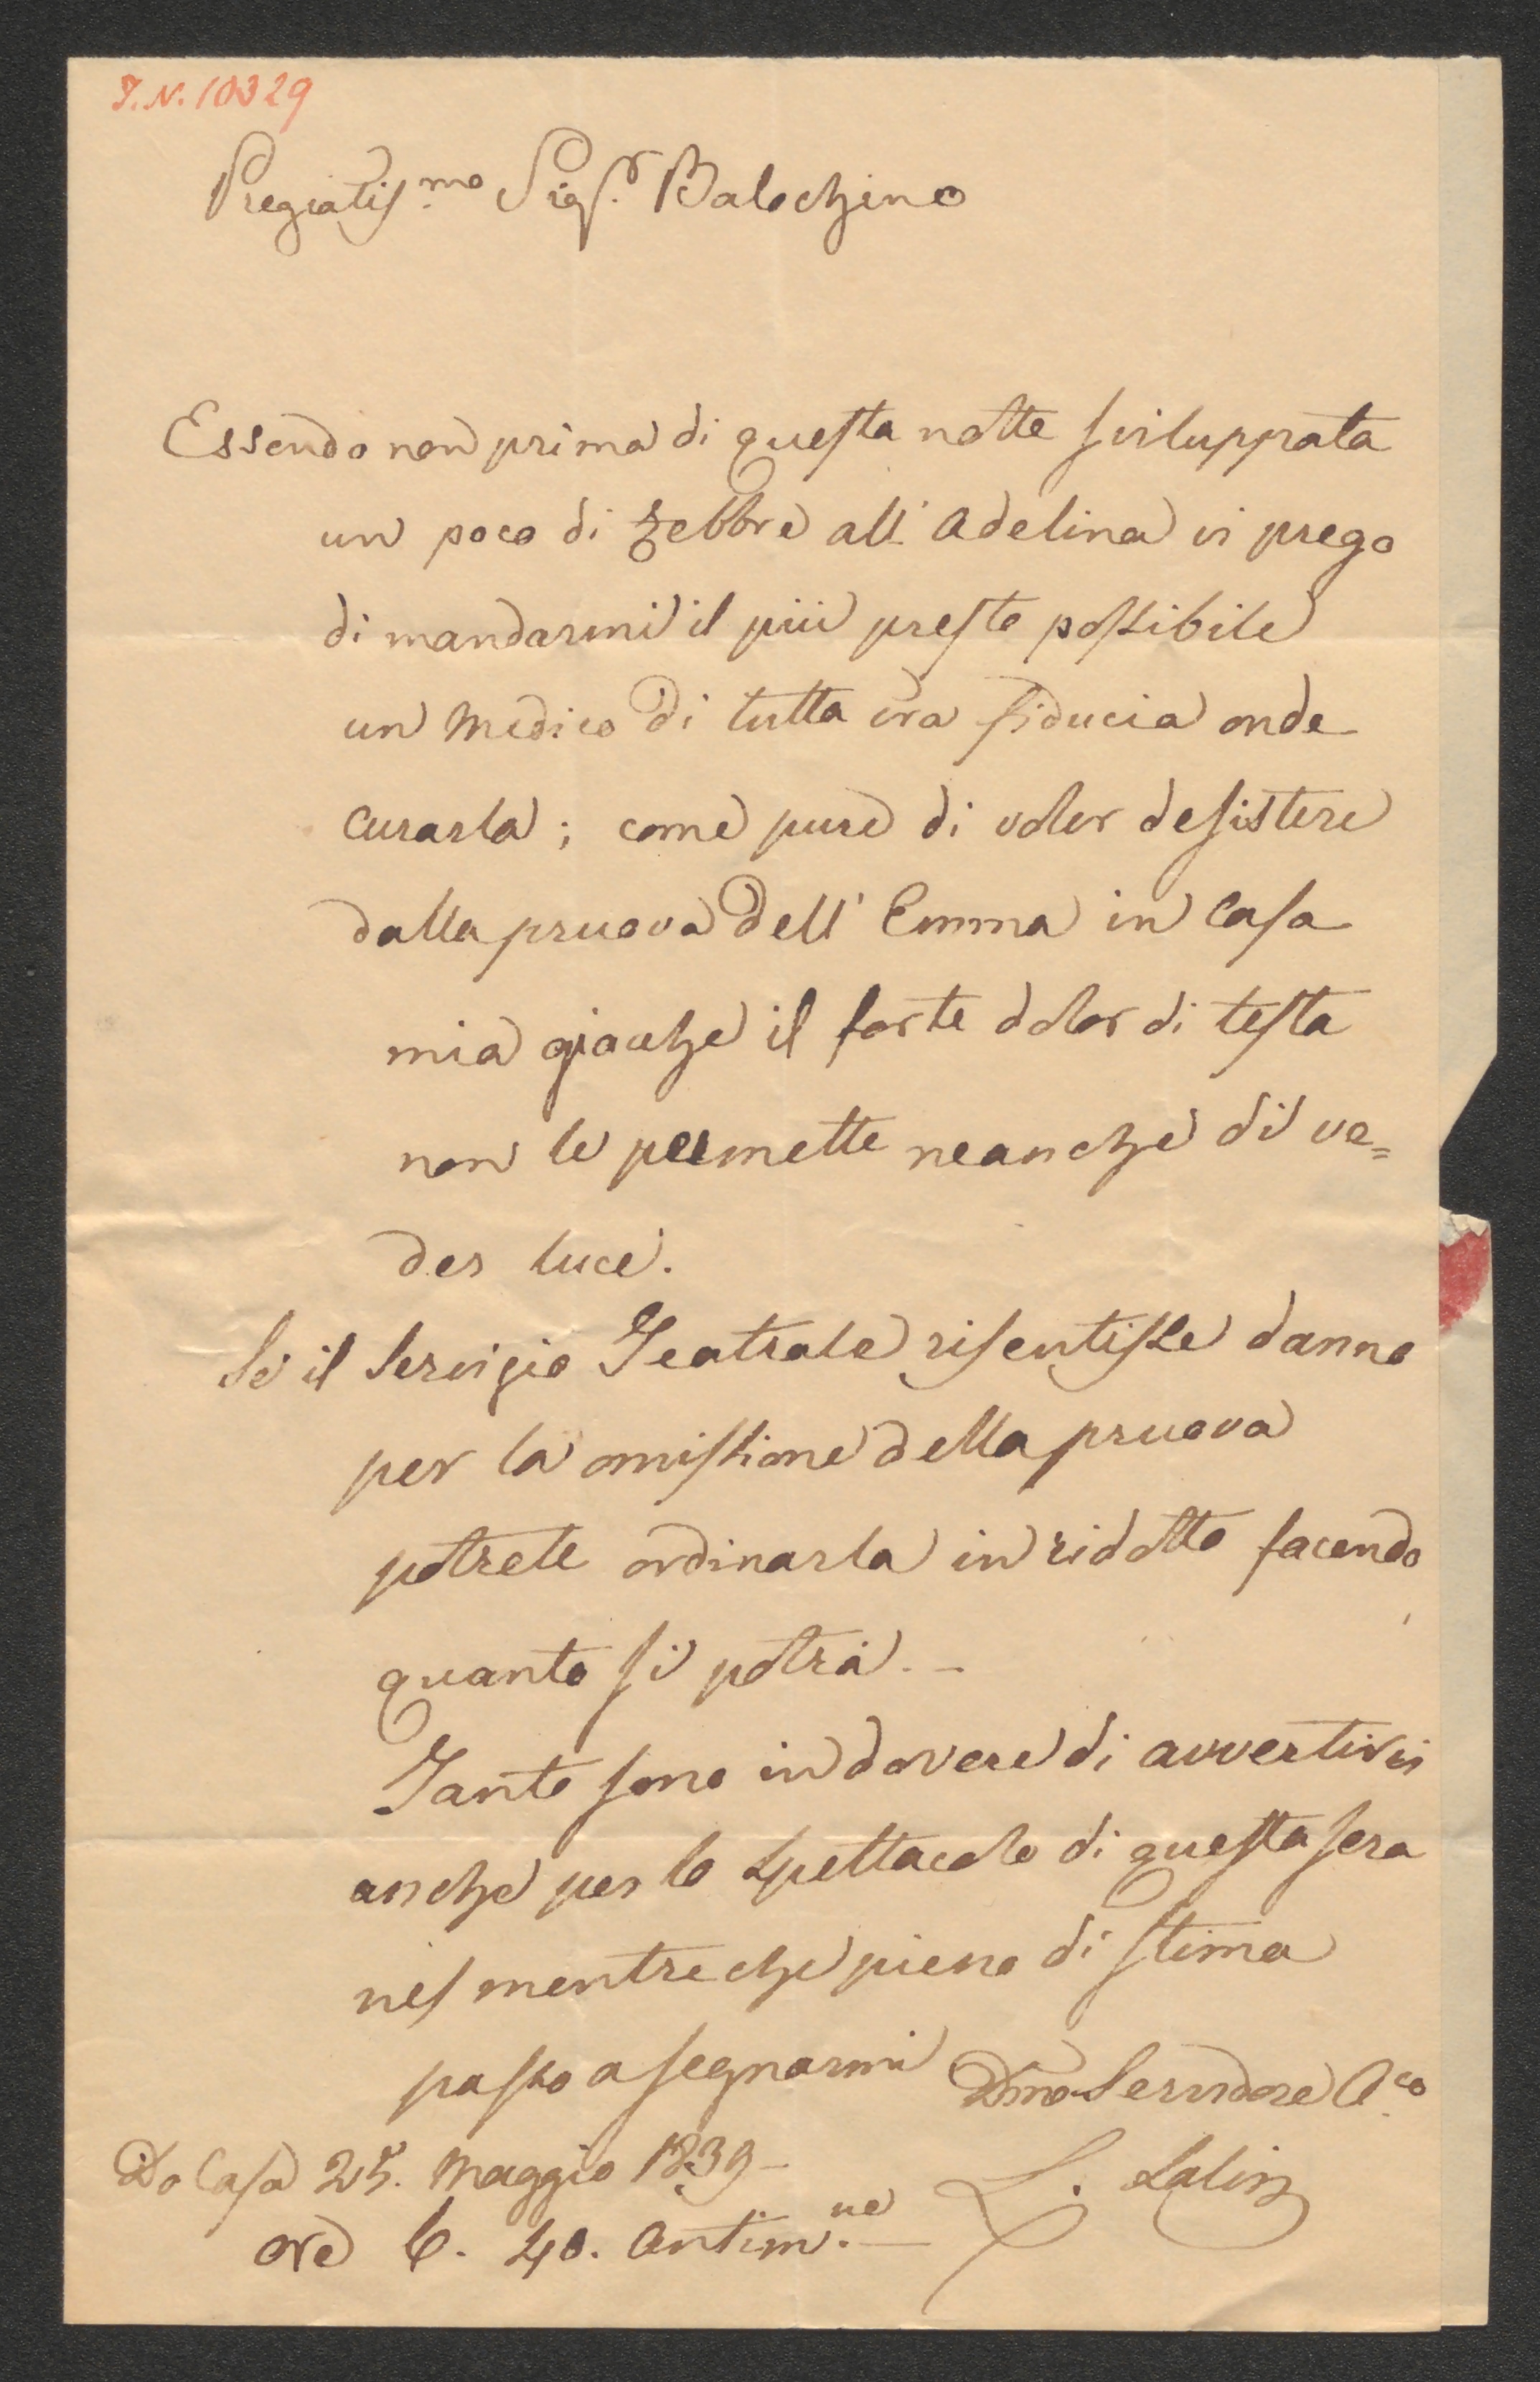 I.N. 10329
Pregiatis.mo Sigr. Balochino
Essendo non prima di questa notte sviluppata
un poco di febbre all'Adelina vi prego
di mandarmi il più presto possibile
un Medico di tutta vra fiducia onde
curarla; come pure di voler desistere
dalla pruova dell'Emma in Casa
mia giacche il forte dolor di testa
non le permette neanche di ve=
der luce.
Se il Servigio Teatrale risentisse danno
per la omissione della pruova
potrete ordinarla in ridotto facendo
quanto si potrà. _
Tanto sono in dovere di avvertirvi
anche per lo Spettacolo di questa sera
nel mentre che pieno di stima
passo a segnarmi Dmo Servidore A.co
Da Casa 25. Maggio 1839 _
ore 6. 40. Antim.ne _